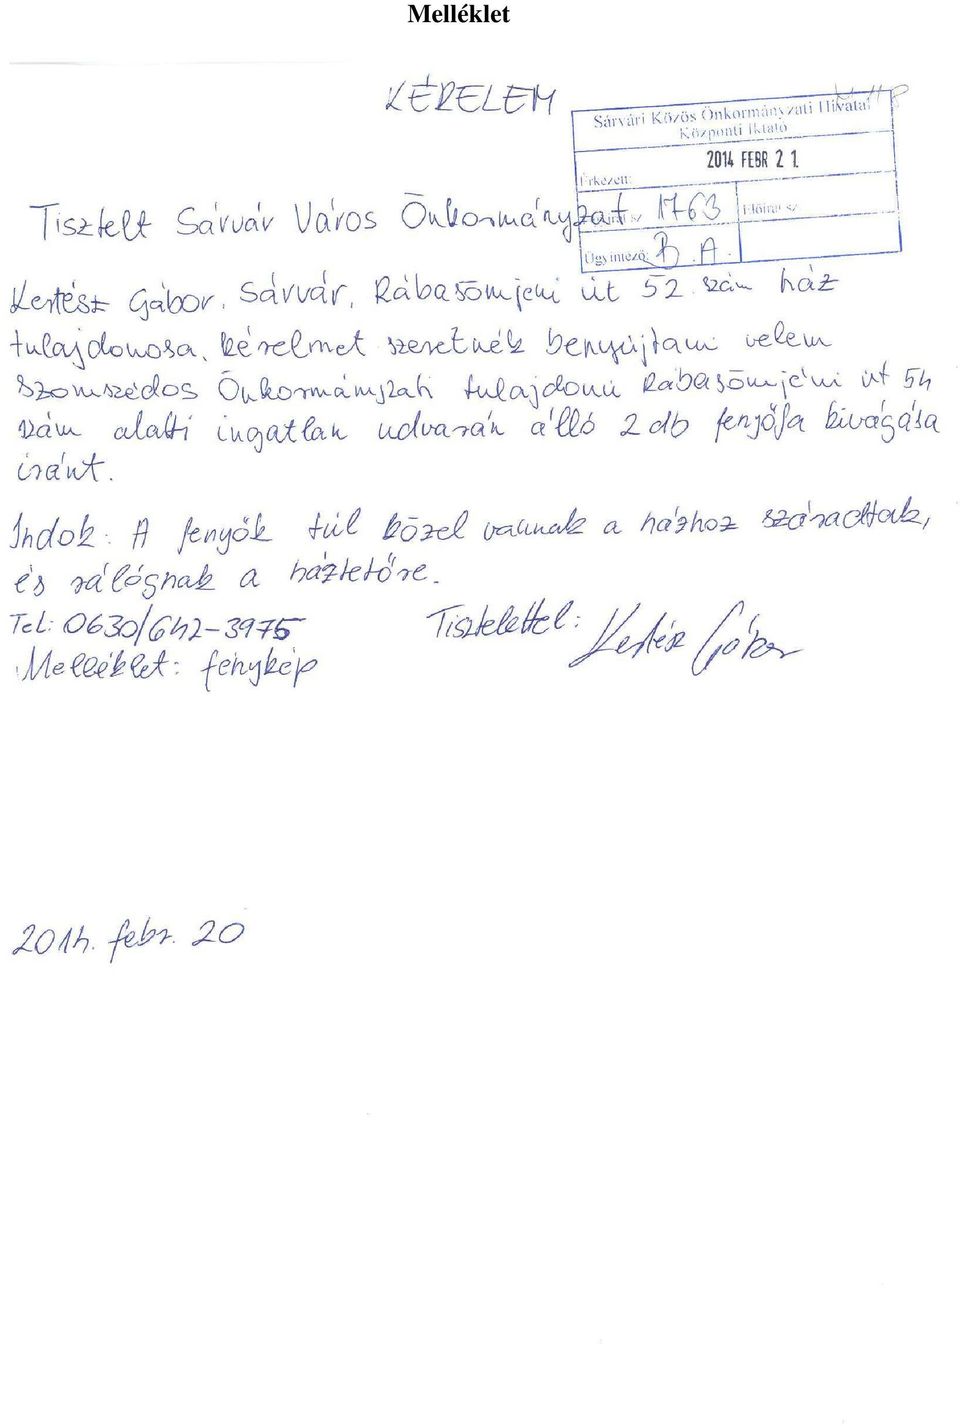 Melléklet
KÉRELEM
Sárvári Közös Önkormányzati Hivatal
Központi Iktató
2014 FEBR 21.
Érkezett:
Tisztelt Sárvár Város Önkormányzat
1763
Előirat sz.
Ügyintéző: B.A.
Kertész Gábor, Sárvár, Rábasömjéni út 52. szám ház
tulajdonosa, kérelmet szeretnék benyújtani velem
szomszédos Önkormányzati tulajdonú Rábasömjéni út 54
szám alatti ingatlan udvarán álló 2 db fenyőfa kivágása
iránt.
Indok: A fenyők túl közel vannak a házhoz száradtak,
és rálógnak a háztetőre.
Tel: 0630/642-3975 Tisztelettel: Kertész Gábor
Melléklet: fénykép
2014. febr. 20